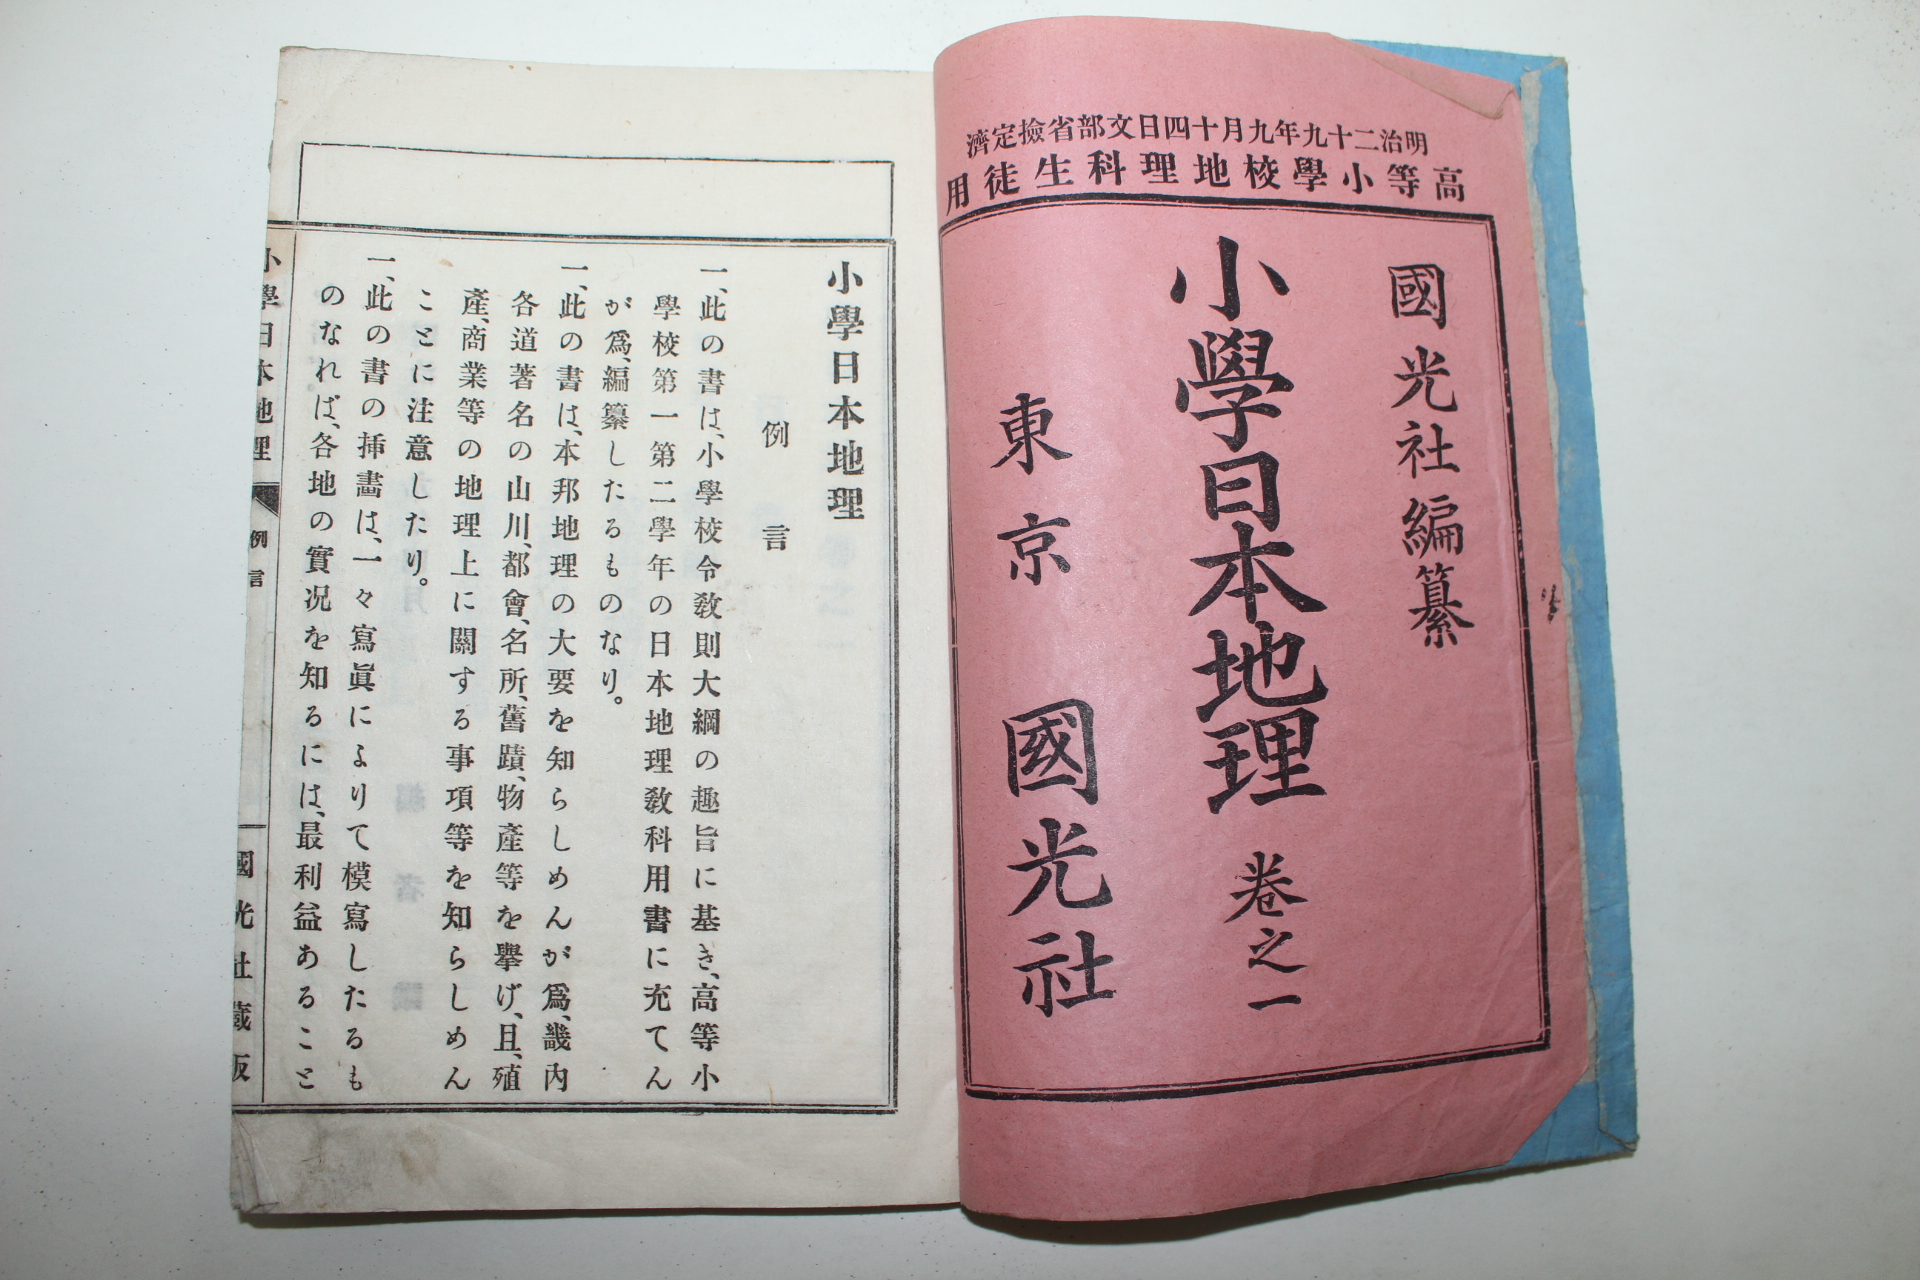 明治二十九年九月十四日文部省檢定濟
高等小學校地理科生徒用
國光社編纂
小學日本地理 卷之一
東京 國光社
小學日本地理
例言
一、此の書は、小學校令敎則大綱の趣旨に基き、高等小
學校第一第二學年の日本地理敎科用書に充てん
が爲、編纂したるものなり。
一、此の書は、本邦地理の大要を知らしめんが爲、畿內
各道著名の山川、都會、名所、舊蹟、物產等を擧げ、且、殖
產、商業等の地理上に關する事項等を知らしめん
ことに注意したり。
一、此の書の挿畵は、一々寫眞によりて模寫したるも
のなれば、各地の實況を知るには、最利益あること
小學日本地理 例言 國光社藏版